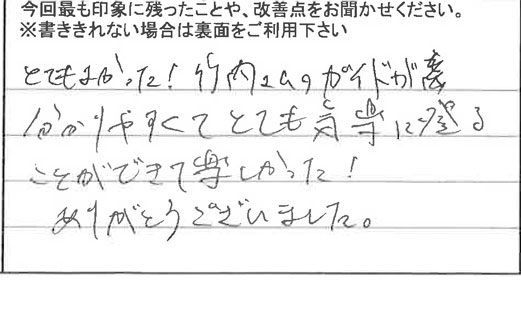 今回最も印象に残ったことや、改善点をお聞かせください。
※書ききれない場合は裏面をご利用下さい
とてもよかった！竹内さんのガイドが
分かりやすくてとても気楽に登る
ことができて楽しかった！
ありがとうございました。